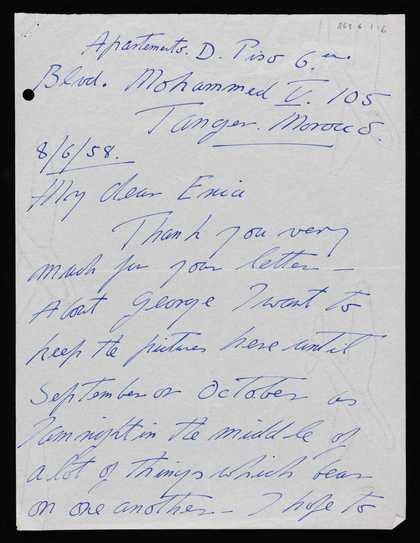 Apartemento. D. Piso 6.
Blvd. Mohammed V. 105
Tanger. Morocco.
8/6/58.
My dear Erica
Thank you very
much for your letter –
About George I want to
keep the pictures here until
September or October as
I am right in the middle of
a lot of things which bear
on one another – I hope to